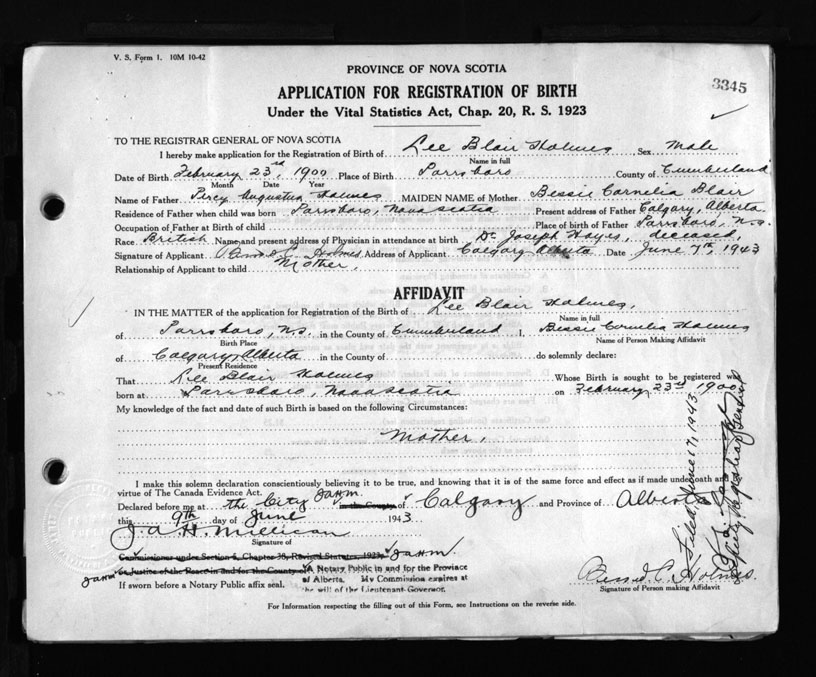 V. S. Form 1. 10M 10-42
PROVINCE OF NOVA SCOTIA
3345
APPLICATION FOR REGISTRATION OF BIRTH
Under the Vital Statistics Act, Chap. 20, R. S. 1923
TO THE REGISTRAR GENERAL OF NOVA SCOTIA
I hereby make application for the Registration of Birth of Lee Blair Holmes Sex Male
Name in full
Date of Birth February 23rd, 1900 Place of Birth Parrsboro County of Cumberland
Month Date Year
Name of Father Percy Augustus Holmes MAIDEN NAME of Mother Bessie Cornelia Blair
Residence of Father when child was born Parrsboro, Nova Scotia Present address of Father Calgary, Alberta.
Occupation of Father at Birth of child Place of birth of Father Parrsboro, N.S.
Race British Name and present address of Physician in attendance at birth Dr. Joseph Hayes, deceased,
Signature of Applicant Bessie C. Holmes Address of Applicant Calgary Alberta Date June 7th, 1943
Relationship of Applicant to child Mother,
AFFIDAVIT
IN THE MATTER of the application for Registration of the Birth of Lee Blair Holmes,
Name in full
of Parrsboro, N.S. in the County of Cumberland I, Bessie Cornelia Holmes
Birth Place Name of Person Making Affidavit
of Calgary, Alberta in the County of do solemnly declare:
Present Residence
That Lee Blair Holmes Whose Birth is sought to be registered was
born at Parrsboro, Nova Scotia on February 23rd 1900
My knowledge of the fact and date of such Birth is based on the following Circumstances:
Mother,
I make this solemn declaration conscientiously believing it to be true, and knowing that it is of the same force and effect as if made under oath and by
virtue of The Canada Evidence Act.
JAHM
Declared before me at the City in the County of Calgary and Province of Alberta
this 9th day of June 1943
J. A. H. Millican
Signature of
Commissioner under Section 6, Chapter 38, Revised Statutes, 1923, JAHM.
JAHM or Justice of the Peace in and for the County of A Notary Public in and for the Province
of Alberta. My Commission expires at
If sworn before a Notary Public affix seal. the will of the Lieutenant-Governor.
Bessie C. Holmes.
Signature of Person making Affidavit
For Information respecting the filling out of this Form, see Instructions on the reverse side.
Filed, June 17, 1943.
Deputy Registrar General